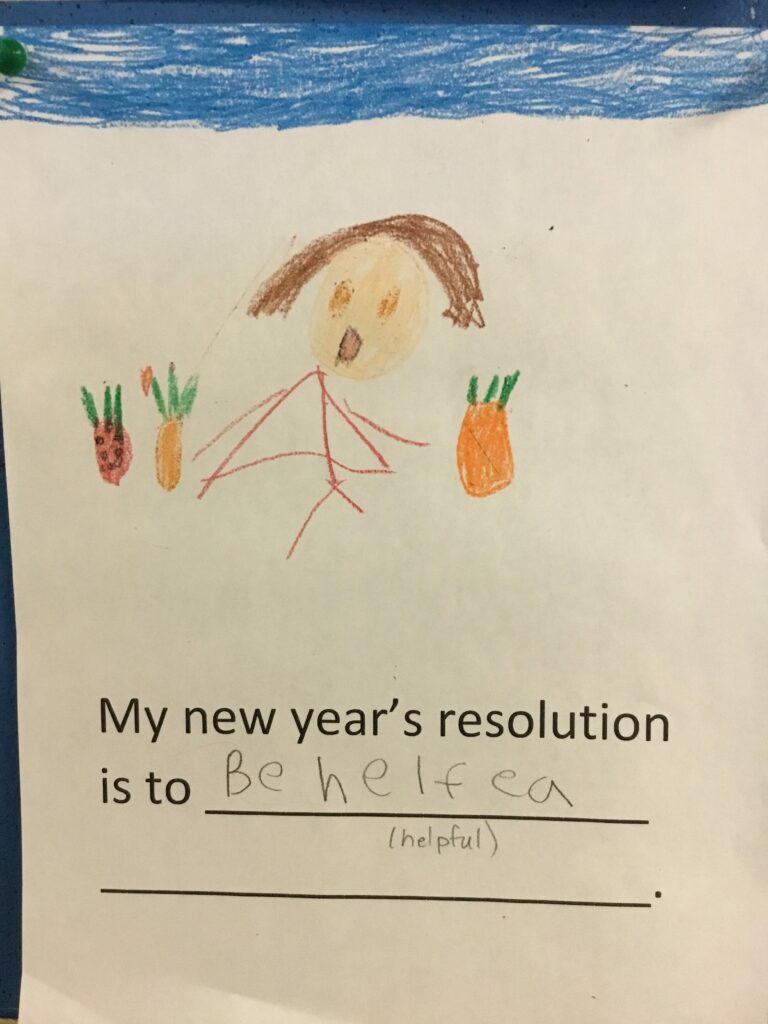 My new year's resolution
is to Be helfea
(helpful)
.